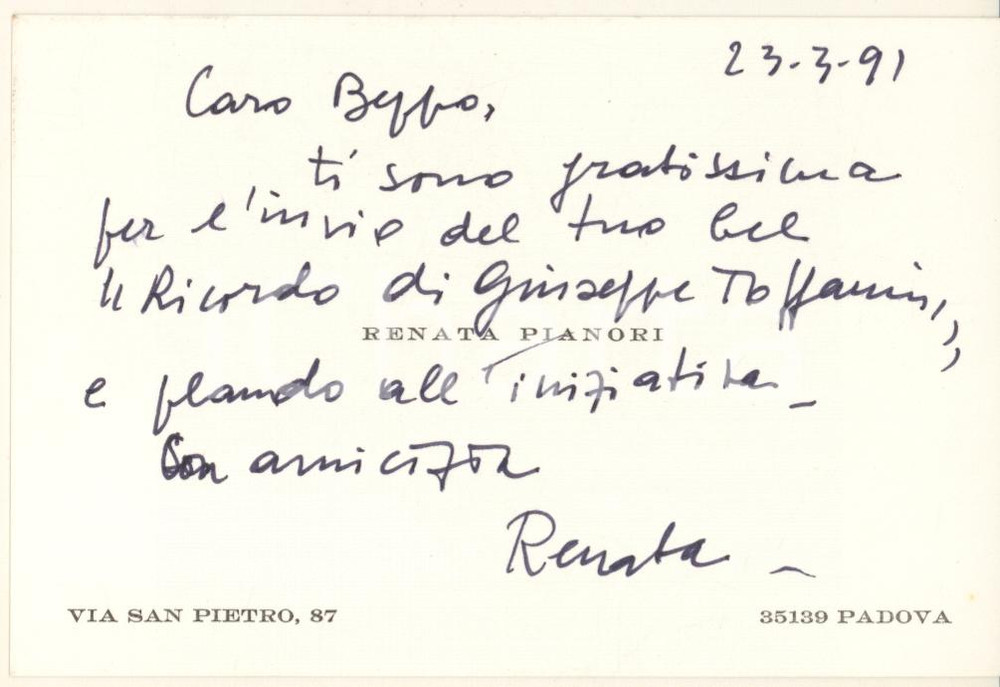 23-3-91
Caro Beppo,
ti sono gratissima
per l'invio del tuo bel
"Ricordo di Giuseppe Toffanin",
RENATA PIANORI
e plaudo all'iniziativa_
Con amicizia
Renata_
VIA SAN PIETRO, 87
35139 PADOVA